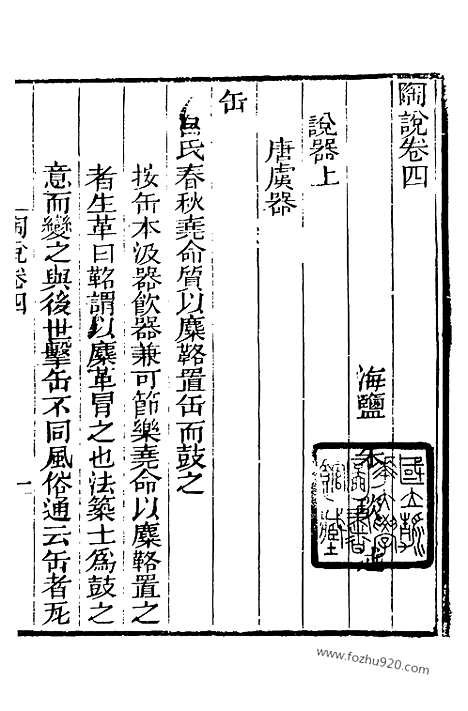 陶說卷四
海鹽 朱
說器上
唐虞器
缶
呂氏春秋堯命質以麋䩭置缶而鼓之
按缶本汲器飲器兼可節樂堯命以麋䩭置之
者生革曰䩭謂以麋革冒之也法築土爲鼓之
意而變之與後世擊缶不同風俗通云缶者瓦
陶說卷四
一
www.fozhu920.com